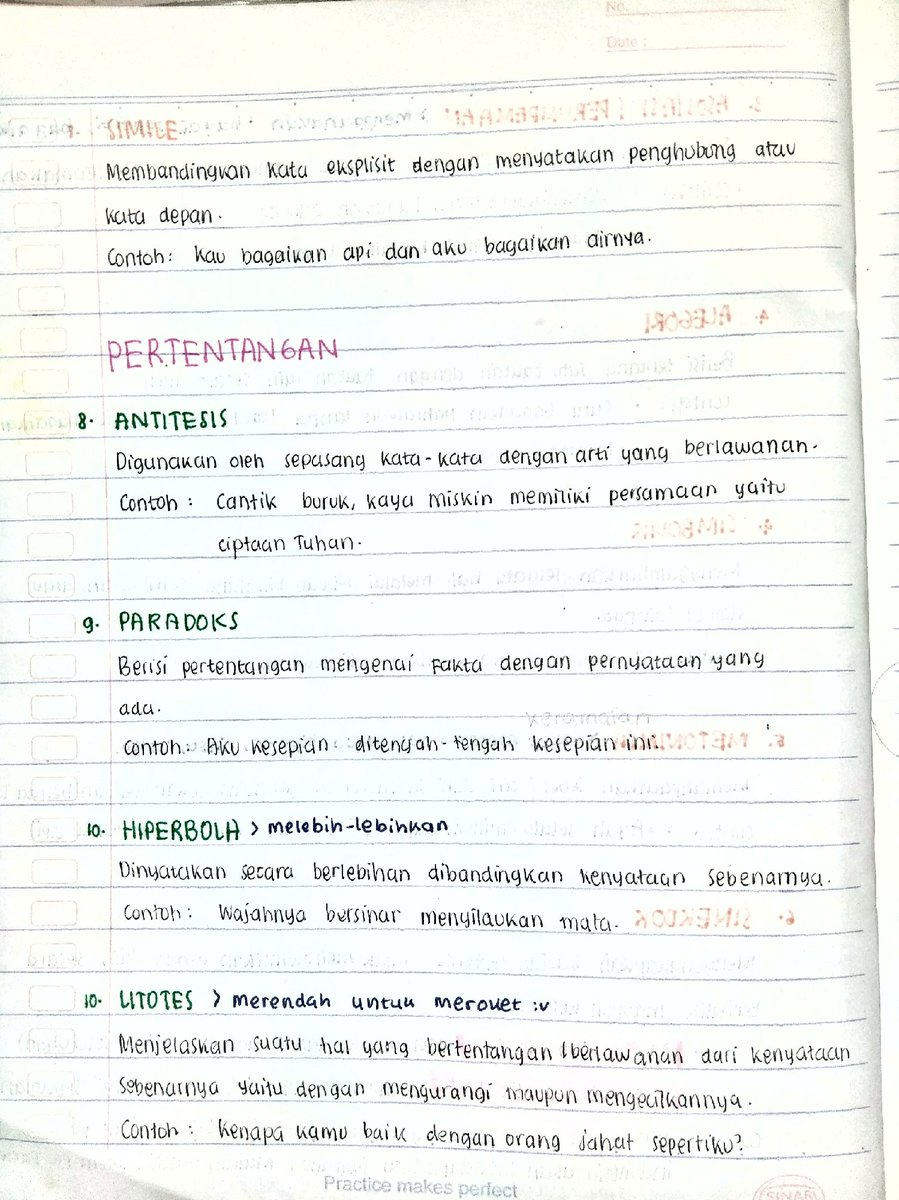 No.
Date :
7. SIMILE
Membandingkan kata eksplisit dengan menyatakan penghubung atau
kata depan.
Contoh: Kau bagaikan api dan aku bagaikan airnya.
PERTENTANGAN
8. ANTITESIS
Digunakan oleh sepasang kata-kata dengan arti yang berlawanan.
Contoh : Cantik buruk, kaya miskin memiliki persamaan yaitu
ciptaan Tuhan.
9. PARADOKS
Berisi pertentangan mengenai fakta dengan pernyataan yang
ada.
Contoh : Aku kesepian ditengah-tengah kesepian ini.
10. HIPERBOLA > melebih-lebihkan
Dinyatakan secara berlebihan dibandingkan kenyataan sebenarnya.
Contoh : Wajahnya bersinar menyilaukan mata.
10. LITOTES > merendah untuk meroket :v
Menjelaskan suatu hal yang bertentangan / berlawanan dari kenyataan
sebenarnya yaitu dengan mengurangi maupun mengecilkannya.
Contoh : Kenapa kamu baik dengan orang jahat sepertiku?
Practice makes perfect